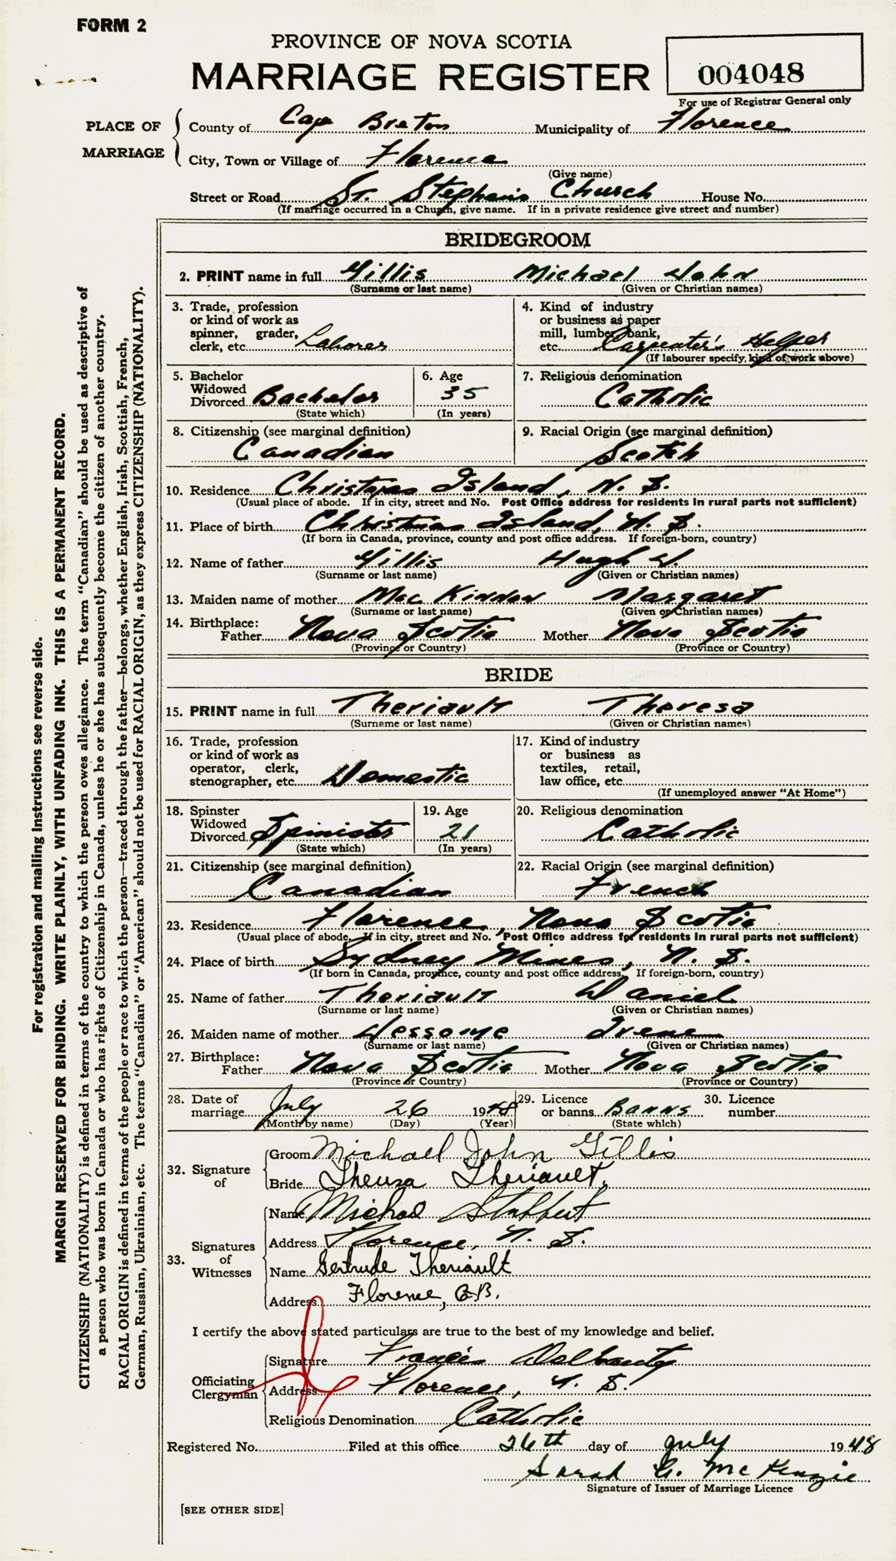 FORM 2
PROVINCE OF NOVA SCOTIA
MARRIAGE REGISTER
004048
For use of Registrar General only
PLACE OF MARRIAGE
County of Cape Breton Municipality of Florence
City, Town or Village of Florence
(Give name)
Street or Road St. Stephens Church House No.
(If marriage occurred in a Church, give name. If in a private residence give street and number)
BRIDEGROOM
2. PRINT name in full Gillis Michael John
(Surname or last name) (Given or Christian names)
3. Trade, profession or kind of work as spinner, grader, clerk, etc. Laborer
4. Kind of industry or business as paper mill, lumber, bank, etc. Carpenter's Helper
(If labourer specify, kind of work above)
5. Bachelor Widowed Divorced Bachelor
(State which)
6. Age 35
(In years)
7. Religious denomination Catholic
8. Citizenship (see marginal definition) Canadian
9. Racial Origin (see marginal definition) Scotch
10. Residence Christmas Island, N. S.
(Usual place of abode. If in city, street and No. Post Office address for residents in rural parts not sufficient)
11. Place of birth Christmas Island, N. S.
(If born in Canada, province, county and post office address. If foreign-born, country)
12. Name of father Gillis Hugh
(Surname or last name) (Given or Christian names)
13. Maiden name of mother MacKinnon Margaret
(Surname or last name) (Given or Christian names)
14. Birthplace: Father Nova Scotia Mother Nova Scotia
(Province or Country) (Province or Country)
BRIDE
15. PRINT name in full Theriault Theresa
(Surname or last name) (Given or Christian names)
16. Trade, profession or kind of work as operator, clerk, stenographer, etc. Domestic
17. Kind of industry or business as textiles, retail, law office, etc.
(If unemployed answer "At Home")
18. Spinster Widowed Divorced Spinister
(State which)
19. Age 21
(In years)
20. Religious denomination Catholic
21. Citizenship (see marginal definition) Canadian
22. Racial Origin (see marginal definition) French
23. Residence Florence, Nova Scotia
(Usual place of abode. If in city, street and No. Post Office address for residents in rural parts not sufficient)
24. Place of birth Sydney Mines, N. S.
(If born in Canada, province, county and post office address. If foreign-born, country)
25. Name of father Theriault Daniel
(Surname or last name) (Given or Christian names)
26. Maiden name of mother Irene
(Surname or last name) (Given or Christian names)
27. Birthplace: Father Nova Scotia Mother Nova Scotia
(Province or Country) (Province or Country)
28. Date of marriage July 26 1948
(Month by name) (Day) (Year)
29. Licence or banns Banns
(State which)
30. Licence number
32. Signature of
Groom Michael John Gillis
Bride Theresa Theriault
33. Signatures of Witnesses
Name Michael Stubbert
Address Florence, N. S.
Name Gertrude Theriault
Address Florence, C.B.
I certify the above stated particulars are true to the best of my knowledge and belief.
Officiating Clergyman
Signature Francis
Address Florence, N. S.
Religious Denomination Catholic
Registered No. Filed at this office 26th day of July 1948
Sarah G. McKenzie
Signature of Issuer of Marriage Licence
[SEE OTHER SIDE]
For registration and mailing instructions see reverse side.
MARGIN RESERVED FOR BINDING. WRITE PLAINLY, WITH UNFADING INK. THIS IS A PERMANENT RECORD.
CITIZENSHIP (NATIONALITY) is defined in terms of the country to which the person owes allegiance. The term "Canadian" should be used as descriptive of
a person who was born in Canada or who has rights of Citizenship in Canada, unless he or she has subsequently become the citizen of another country.
RACIAL ORIGIN is defined in terms of the people or race to which the person—traced through the father—belongs, whether English, Irish, Scottish, French,
German, Russian, Ukrainian, etc. The terms "Canadian" or "American" should not be used for RACIAL ORIGIN, as they express CITIZENSHIP (NATIONALITY).